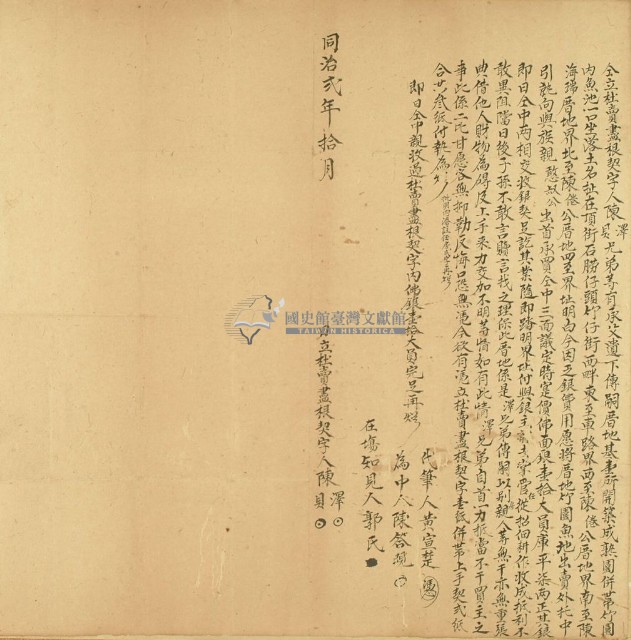 仝立杜賣盡根契字人陳澤貝兄弟等有承父遺下傳嗣厝地基壹所開築成熟園併帶竹圍
內魚池一口坐落土名址在頂街石勝仔頭竹仔街西畔東至車路界西至陳倦公厝地界南至陳
海瑞厝地界北至陳倦公厝地四至界址明白今因乏銀費用愿將厝地竹圍魚池出賣外托中
引就向與族親憨叔公出首承買仝中三面議定時定價佛面銀壹拾大員庫平柒兩正其銀
即日仝中兩相交收銀契足訖其業隨即踏明界址付與銀主前去掌管從招佃耕作收成抵利不
敢異阻擋日後子孫不敢言贖言找之理保此厝地係是澤兄弟傳嗣以別親人等無干亦無重張
典借他人財物為碍及上手來力交加不明等情如有此情澤兄弟自首一力抵當不干買主之
事此係二比甘愿各無抑勒反悔口恐無憑今欲有憑立杜賣盡根契字壹紙併帶上手契弍紙
合共叁紙付執為炤
即日仝中親收過杜賣盡根契字內佛銀壹拾大員完足再炤
代筆人黃宣楚
為中人陳答硯
在塲知見人郭氏
仝立杜賣盡根契字人陳澤貝
同治弍年拾月
國史館臺灣文獻館
TAIWAN HISTORICA